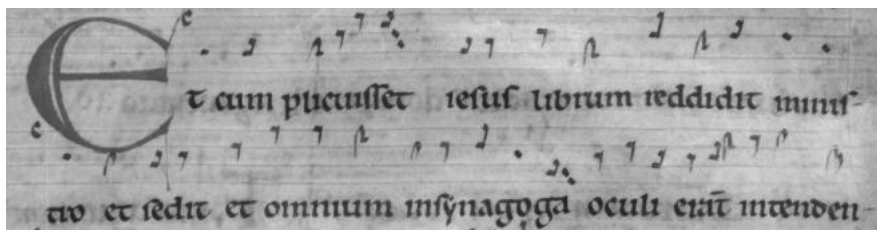 Et cum plicuisset iesus librum reddidit minis-
tro et sedit et omnium insynagoga oculi erant intenden-